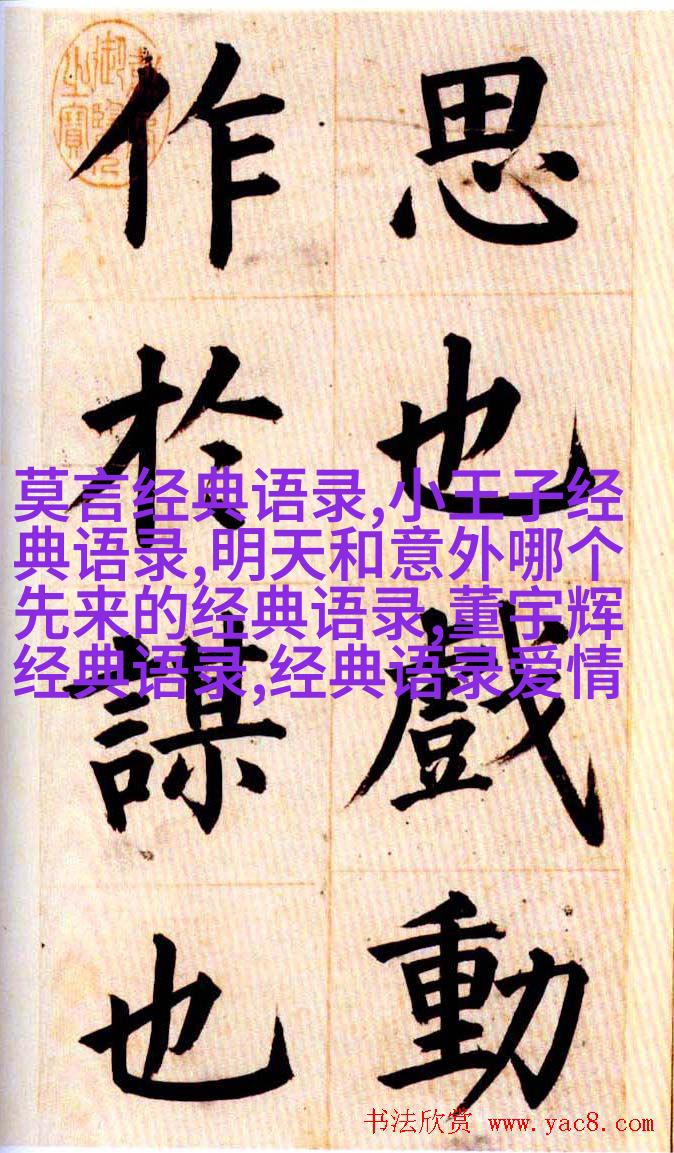 思也戲動
作於謀也
莫言经典语录,小王子经
典语录,明天和意外哪个
先来的经典语录,董宇辉
经典语录,经典语录爱情
书法欣赏 www.yac8.com